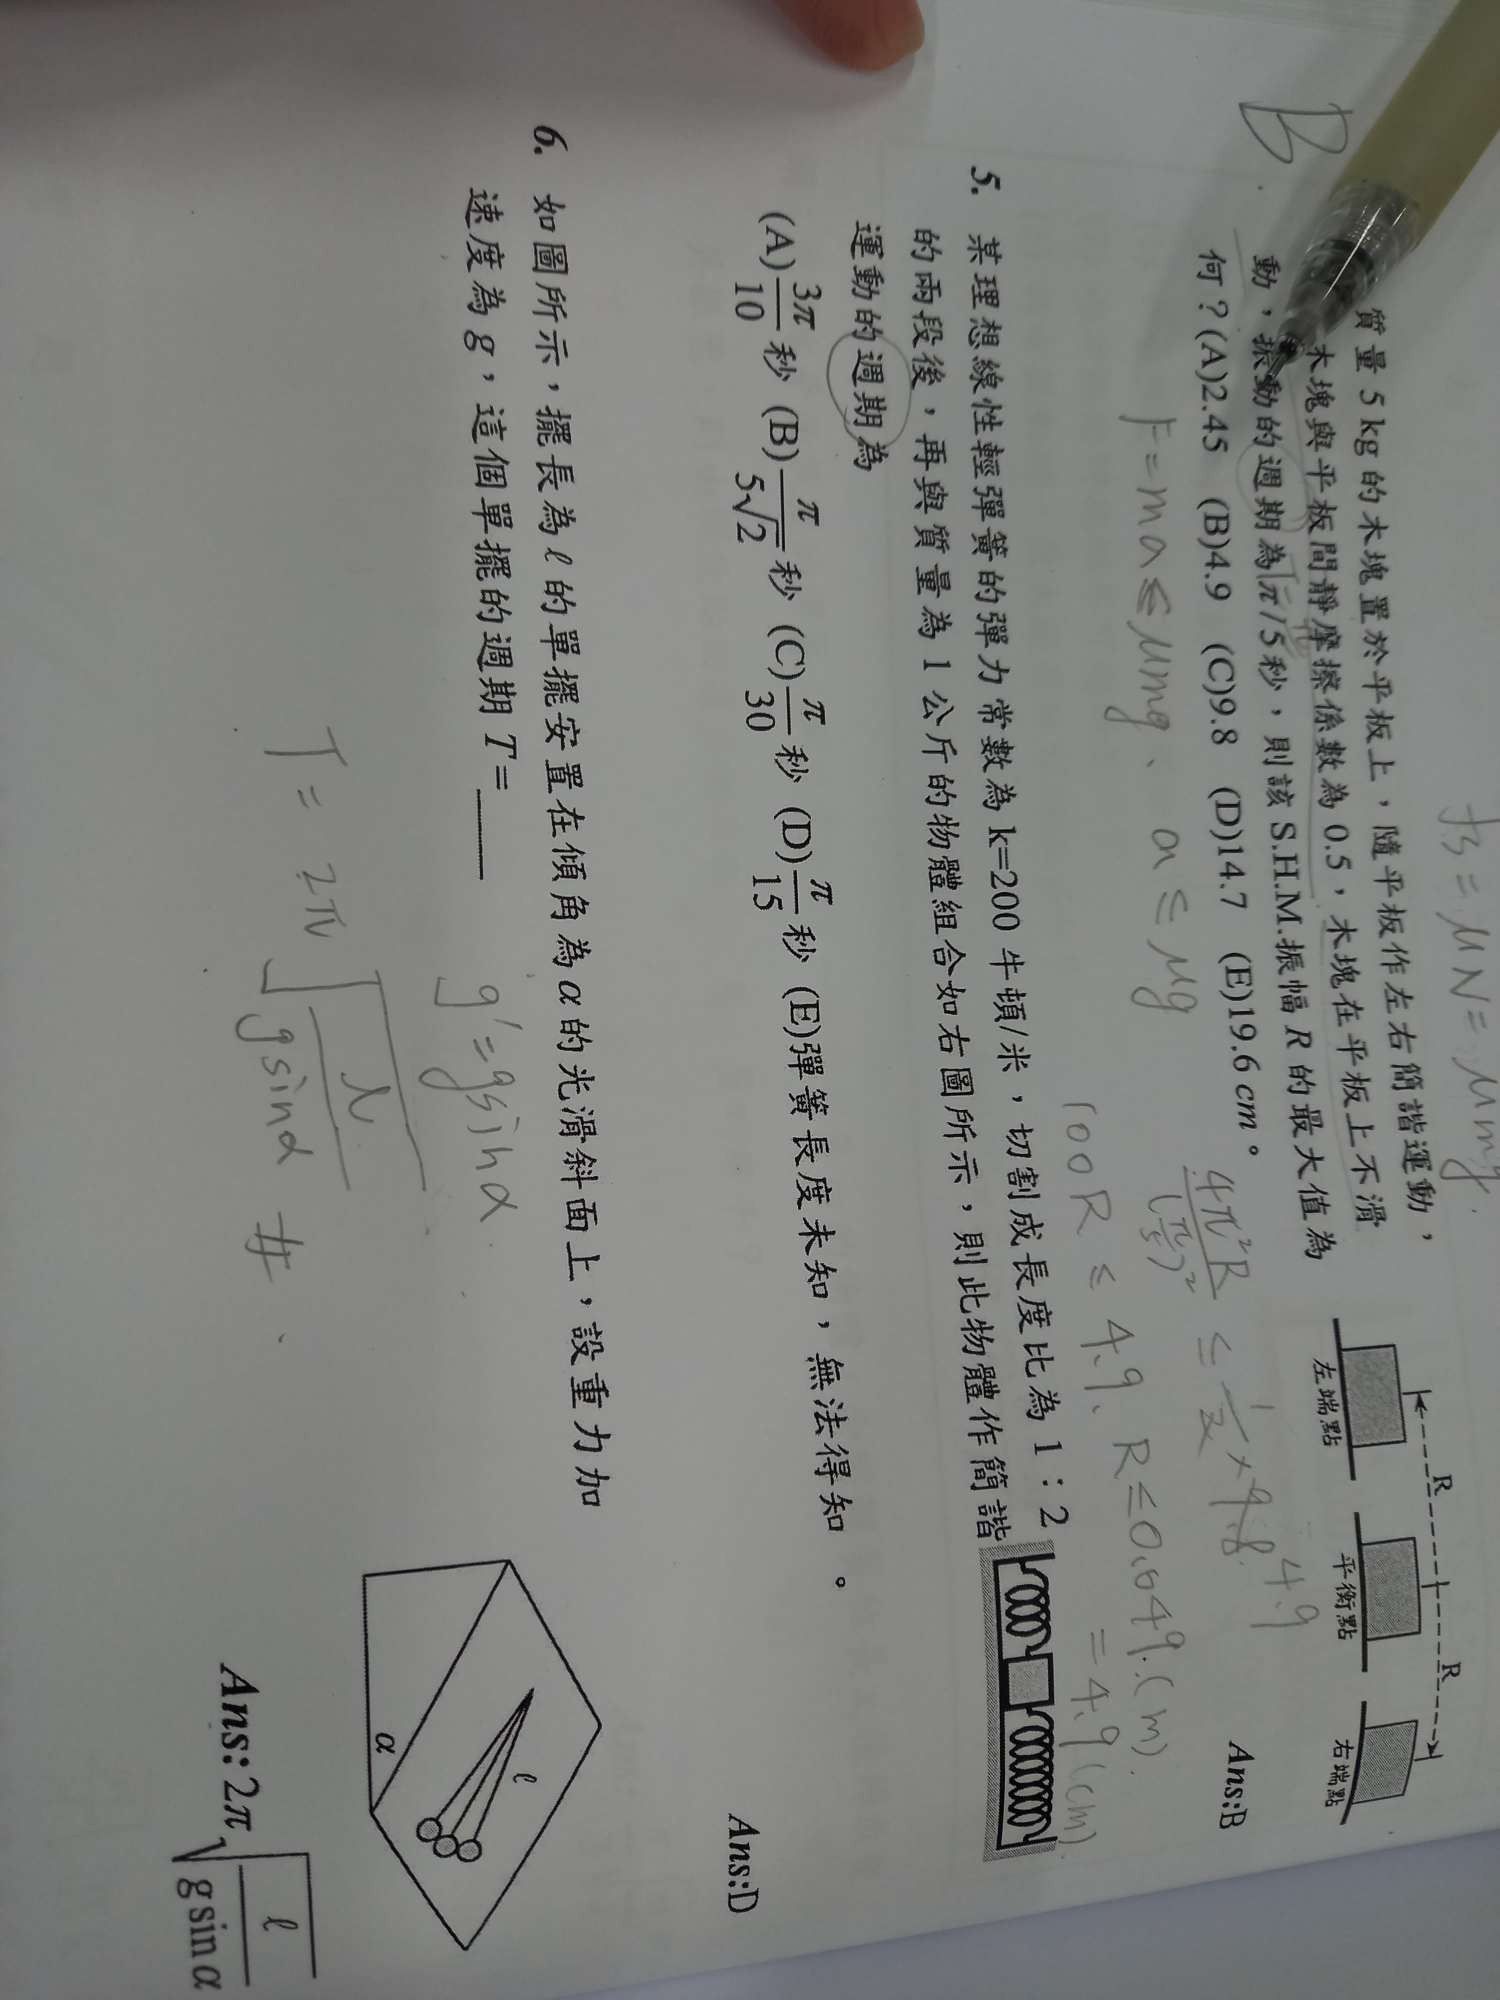 fs = μN = μmg.
質量 5 kg 的木塊置於平板上，隨平板作左右簡諧運動，
木塊與平板間靜摩擦係數為 0.5，木塊在平板上不滑
動，振動的週期為π/5 秒，則該 S.H.M.振幅 R 的最大值為
何？(A)2.45 (B)4.9 (C)9.8 (D)14.7 (E)19.6 cm。
B
R R
左端點 平衡點 右端點
Ans:B
F = ma ≤ μmg、 a ≤ μg
4π²R/(π/5)² ≤ 1/2 × 9.8 4.9
100R ≤ 4.9、R ≤ 0.049 (m).
= 4.9 (cm).
5. 某理想線性輕彈簧的彈力常數為 k=200 牛頓/米，切割成長度比為 1：2
的兩段後，再與質量為 1 公斤的物體組合如右圖所示，則此物體作簡諧
運動的週期為
(A) 3π/10 秒 (B) π/5√2 秒 (C) π/30 秒 (D) π/15 秒 (E)彈簧長度未知，無法得知 。
Ans:D
6. 如圖所示，擺長為 ℓ 的單擺安置在傾角為 α 的光滑斜面上，設重力加
速度為 g，這個單擺的週期 T=____
g' = g sin α
T = 2π √(ℓ/g sin α) #
ℓ
α
Ans: 2π √(ℓ/g sin α)